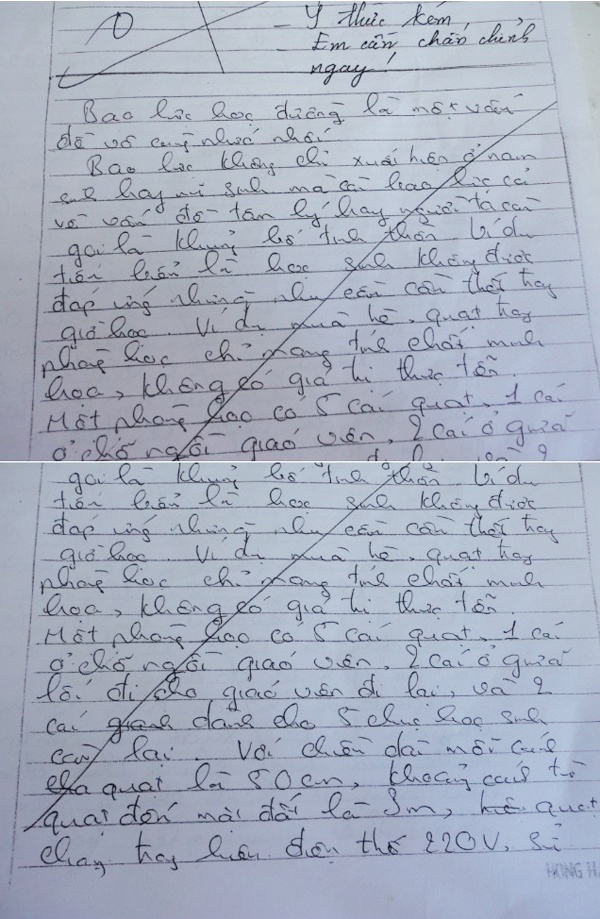 0
- Ý thức kém,
Em cần chấn chỉnh
ngay!
Bạo lực học đường là một vấn
đề vô cùng nhức nhối
Bạo lực không chỉ xuất hiện ở nam
sinh hay nữ sinh mà còn bạo lực cả
về vấn đề tâm lý hay người ta còn
gọi là khủng bố tinh thần. Ví dụ
tiêu biểu là học sinh không được
đáp ứng những nhu cầu cần thiết trong
giờ học. Ví dụ mùa hè, quạt trong
phòng học chỉ mang tính chất minh
họa, không có giá trị thực tiễn.
Một phòng học có 5 cái quạt, 1 cái
ở chỗ ngồi giáo viên, 2 cái ở giữa
gọi là khủng bố tinh thần. Ví dụ
tiêu biểu là học sinh không được
đáp ứng những nhu cầu cần thiết trong
giờ học. Ví dụ mùa hè, quạt trong
phòng học chỉ mang tính chất minh
họa, không có giá trị thực tiễn
Một phòng học có 5 cái quạt, 1 cái
ở chỗ ngồi giáo viên, 2 cái ở giữa
lối đi cho giáo viên đi lại, và 2
cái dành cho 5 chục học sinh
còn lại. Với chiều dài mỗi cánh
quạt là 50cm, khoảng cách từ
quạt đến mặt đất là 3m, quạt
chạy trong hiệu điện thế 220V, sử
HONG HA